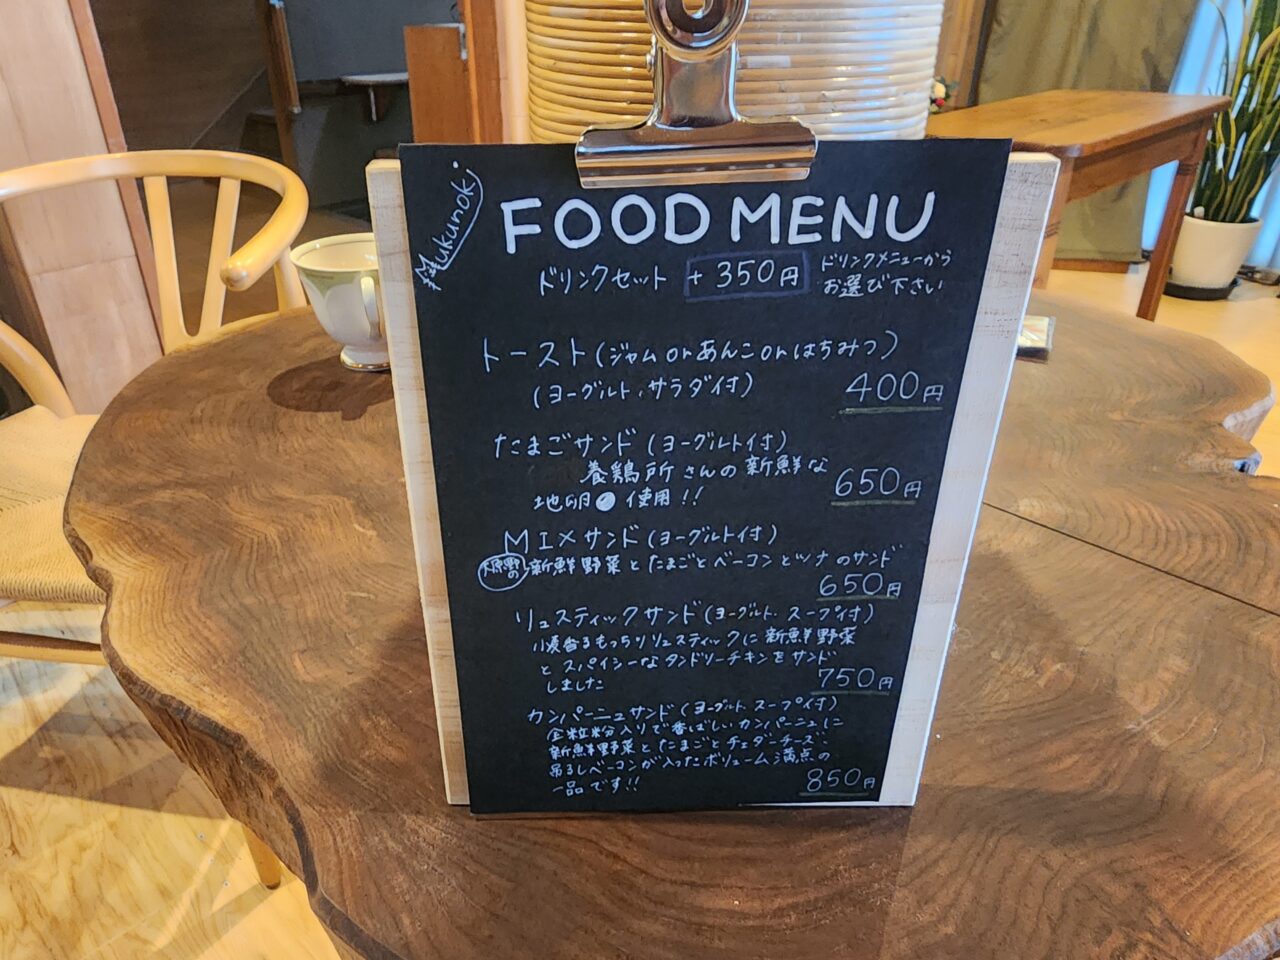 Mukunoki
FOOD MENU
ドリンクセット +350円
ドリンクメニューから
お選び下さい
トースト(ジャムorあんこorはちみつ)
(ヨーグルト、サラダ付)
400円
たまごサンド(ヨーグルト付)
養鶏所さんの新鮮な
地卵使用!!
650円
MIXサンド(ヨーグルト付)
大原野の新鮮野菜とたまごとベーコンとツナのサンド
650円
リュスティックサンド(ヨーグルト、スープ付)
小麦香るもっちりリュスティックに新鮮野菜
とスパイシーなタンドリーチキンをサンド
しました
750円
カンパーニュサンド(ヨーグルト、スープ付)
全粒粉入りで香ばしいカンパーニュに
新鮮野菜とたまごとチェダーチーズ、
吊るしベーコンが入ったボリューム満点の
一品です!!
850円